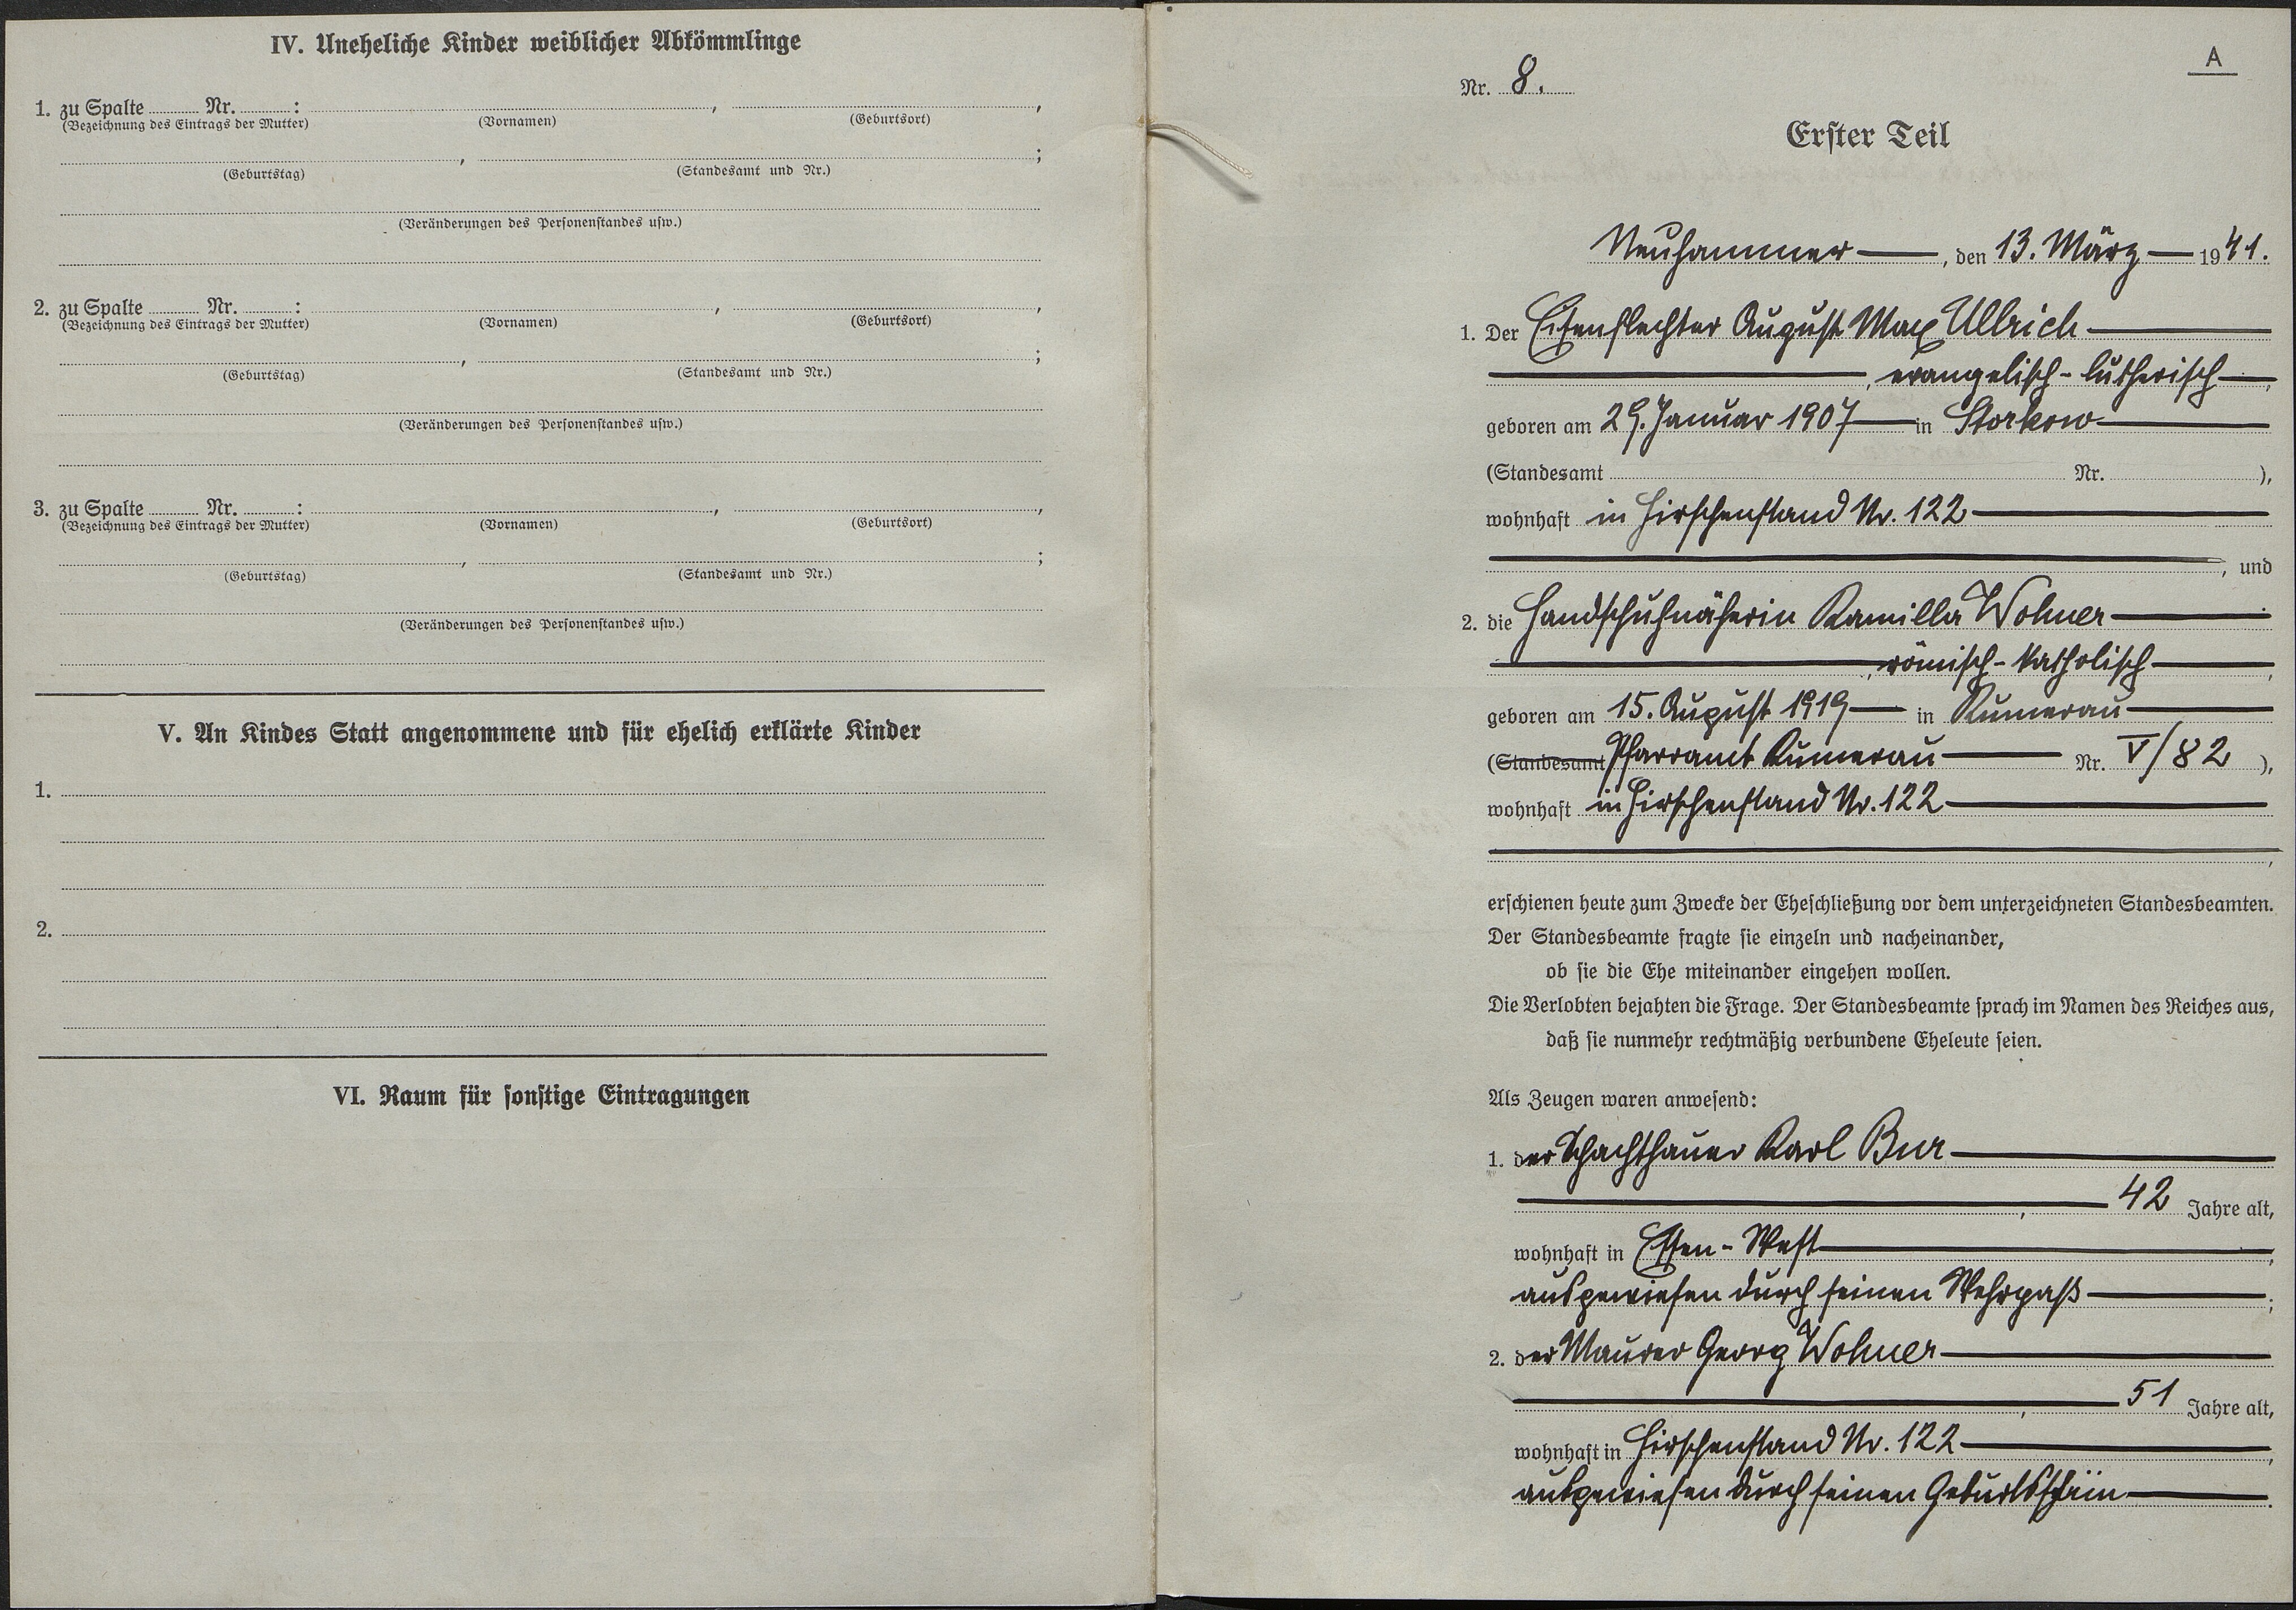 IV. Uneheliche Kinder weiblicher Abkömmlinge
1. zu Spalte Nr. : , ,
(Bezeichnung des Eintrags der Mutter) (Vornamen) (Geburtsort)
, ;
(Geburtstag) (Standesamt und Nr.)
(Veränderungen des Personenstandes usw.)
2. zu Spalte Nr. : , ,
(Bezeichnung des Eintrags der Mutter) (Vornamen) (Geburtsort)
, ;
(Geburtstag) (Standesamt und Nr.)
(Veränderungen des Personenstandes usw.)
3. zu Spalte Nr. : , ,
(Bezeichnung des Eintrags der Mutter) (Vornamen) (Geburtsort)
, ;
(Geburtstag) (Standesamt und Nr.)
(Veränderungen des Personenstandes usw.)
V. An Kindes Statt angenommene und für ehelich erklärte Kinder
1.
2.
VI. Raum für sonstige Eintragungen
A
Nr. 8.
Erster Teil
Neuhammer, den 13. März 1941.
1. Der Eisenflechter August Max Ullrich
, evangelisch-lutherisch,
geboren am 29. Januar 1907 in Storkow
(Standesamt Nr. ),
wohnhaft in Hirschenstand Nr. 122
, und
2. die Handschuhnäherin Kamilla Wohner
, römisch-katholisch,
geboren am 15. August 1919 in Kumerau
(Standesamt Pfarramt Kumerau Nr. V/82 ),
wohnhaft in Hirschenstand Nr. 122
,
erschienen heute zum Zwecke der Eheschließung vor dem unterzeichneten Standesbeamten.
Der Standesbeamte fragte sie einzeln und nacheinander,
ob sie die Ehe miteinander eingehen wollen.
Die Verlobten bejahten die Frage. Der Standesbeamte sprach im Namen des Reiches aus,
daß sie nunmehr rechtmäßig verbundene Eheleute seien.
Als Zeugen waren anwesend:
1. der Schachthauer Karl Bur
, 42 Jahre alt,
wohnhaft in Essen-West,
ausgewiesen durch seinen Wehrpaß;
2. der Maurer Georg Wohner
, 51 Jahre alt,
wohnhaft in Hirschenstand Nr. 122,
ausgewiesen durch seinen Geburtsschein.